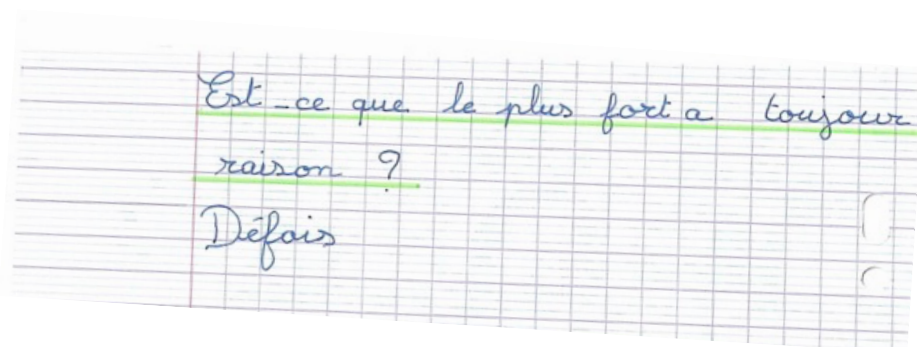 Est-ce que le plus fort a toujour
raison ?
Défois